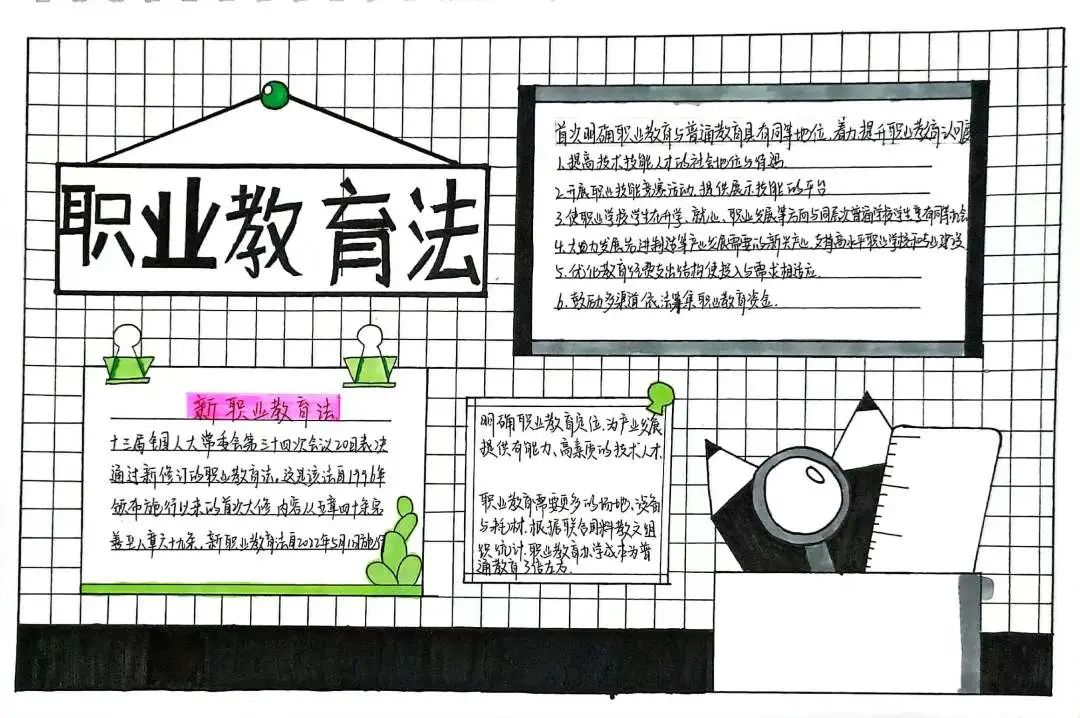 职业教育法
首次明确职业教育与普通教育具有同等地位，着力提升职业教育认可度
1.提高技术技能人才的社会地位与待遇
2.开展职业技能竞赛活动，提供展示技能的平台
3.使职业学校学生在升学、就业、职业发展等方面与同层次普通学校学生享有同等机会
4.大力发展先进制造等产业发展需要的新兴产业，支持高水平职业学校和专业建设
5.优化教育经费支出结构使投入与需求相适应
6.鼓励多渠道依法筹集职业教育资金.
新职业教育法
十三届全国人大常委会第三十四次会议20日表决
通过新修订的职业教育法，这是该法自1996年
颁布施行以来的首次大修 内容从五章四十条完
善至八章六十九条，新职业教育法自2022年5月1日施行
明确职业教育定位，为产业发展
提供有能力、高素质的技术人才.
职业教育需要更多的场地、设备
与耗材，根据联合国科教文组
织统计，职业教育办学成本为普
通教育3倍左右.